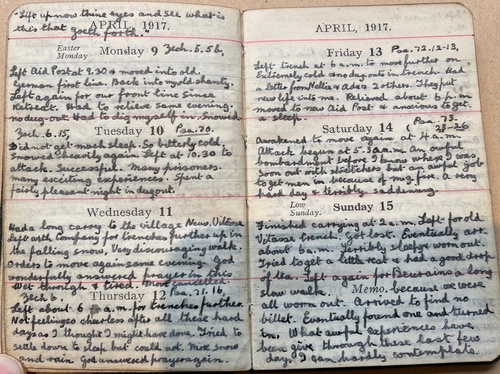 "Lift up now thine eyes and see what is
this that goeth forth."
APRIL, 1917.
Easter Monday
Monday 9 Zech. 5. 5b.
Left Aid Post at 9.30 & moved into old
German first line. Back into my old shanty.
Left again for our front line since
Retreat. Had to relieve same evening.
no dug-out. Had to dig myself in. Snowed
Zech. 6. 15,
Tuesday 10 Psa. 70.
Did not get much sleep. So bitterly cold.
Snowed heavily again. Left at 10.30 to
attack. Successful. Many prisoners.
many exciting experiences. Spent a
fairly pleasant night in dugout.
Wednesday 11
Had a long carry to the village. New.
Left with Company for trenches further up in
the falling snow. Very discouraging walk.
Orders to move again same evening. God
wonderfully answered prayer in this
Wet through & tired. Move cancelled.
Zech 6.
Thursday 12
Left about 6 for trenches further.
Not feeling so cheerful after all these hard
days as I thought I might have done. Tried to
settle down to sleep but could not. More snow
and rain. God answered prayer again.
APRIL, 1917.
Friday 13 Psa. 72. 12-13.
Left trench at 6 a.m. to move further on
Extremely cold & no dug out in trench. Had
a letter from Nellie & Ada & 2 others. They put
new life into me. Relieved about 6 p.m.
moved to new Aid Post & anxious to get
a sleep.
Saturday 14 Psa. 73. 23-26
Awakened to move again at 4 a.m.
Attack began at 5.30 a.m. An awful
bombardment before I knew where I was
Soon out with stretchers but a difficult job
to get men in because of mg. fire. A very
hard day & terribly saddening.
Low Sunday.
Sunday 15
Finished carrying at 2 a.m. Left for old
trench & got lost. Eventually arr.
about 6 a.m. Terribly sleepy & worn out.
Tried to get a little rest & had a good drop
of tea. Left again for a long
slow walk. Memo. because we were
all worn out. Arrived to find no
billet. Eventually found one and turned
in. What awful experiences have
been give through these last few
days, I can hardly contemplate.